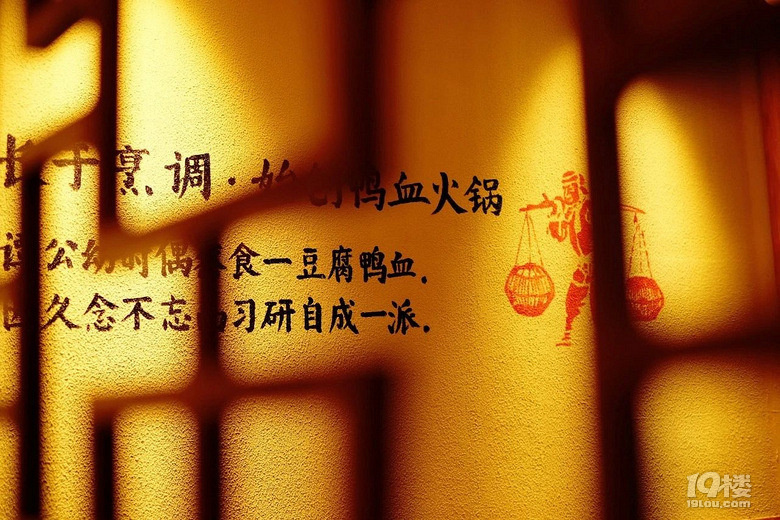 长于烹调·始创鸭血火锅
公幼时偶 食一豆腐鸭血.
因久念不忘 习研自成一派.
19楼
19lou.com